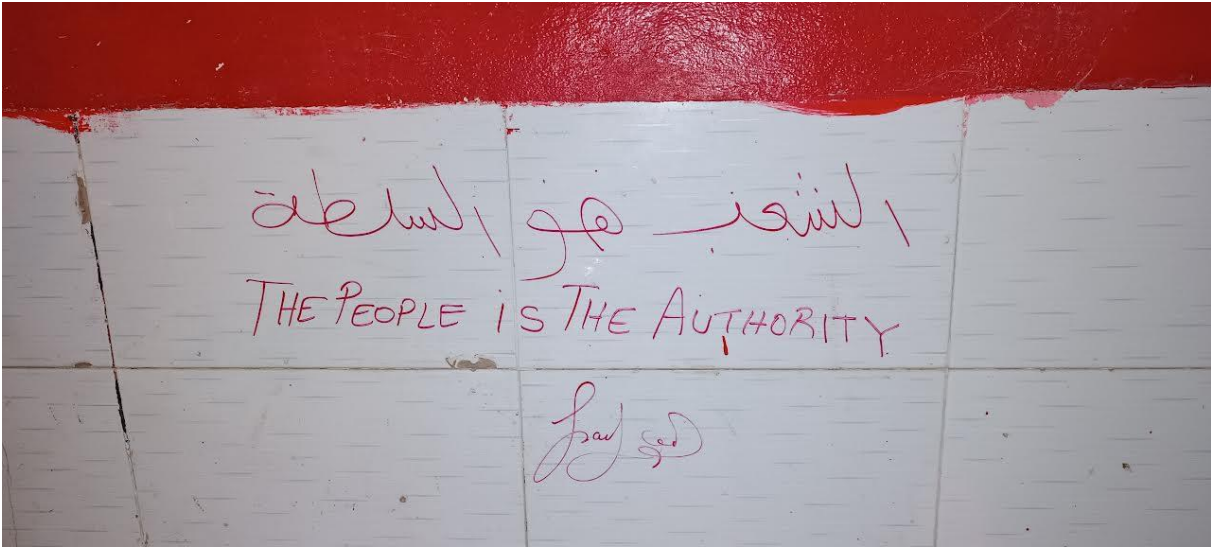 الشعب هو السلطة
THE PEOPLE iS THE AUTHORITY